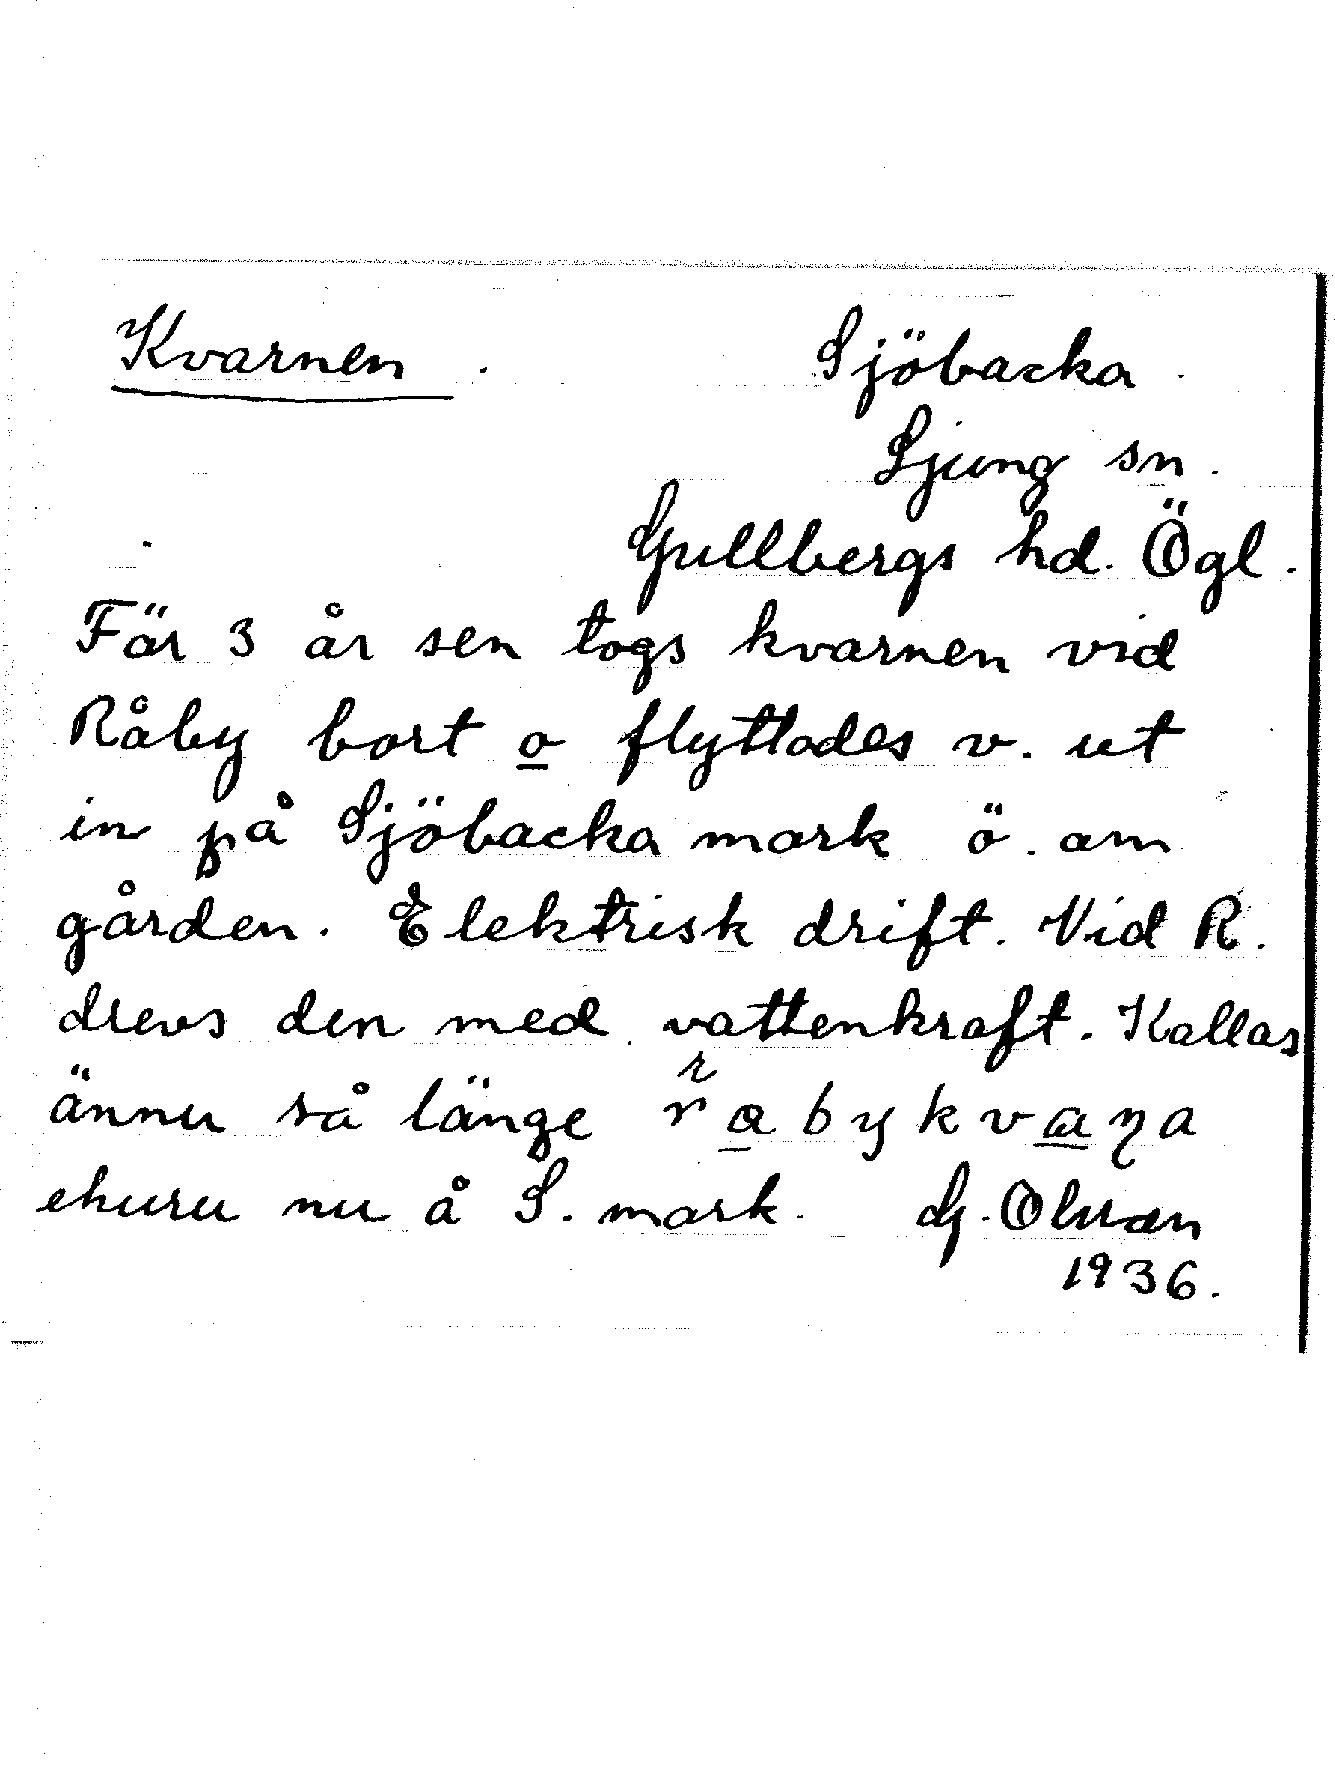 Kvarnen.
Sjöbacka.
Ljung sn.
Gullbergs hd. Ögl.
Fär 3 år sen togs kvarnen vid
Råby bort o flyttades v. ut
in på Sjöbacka mark ö. om
gården. Elektrisk drift. Vid R.
drevs den med vattenkraft. Kallas
ännu så länge
ehuru nu å S. mark. G. Olsson
1936.